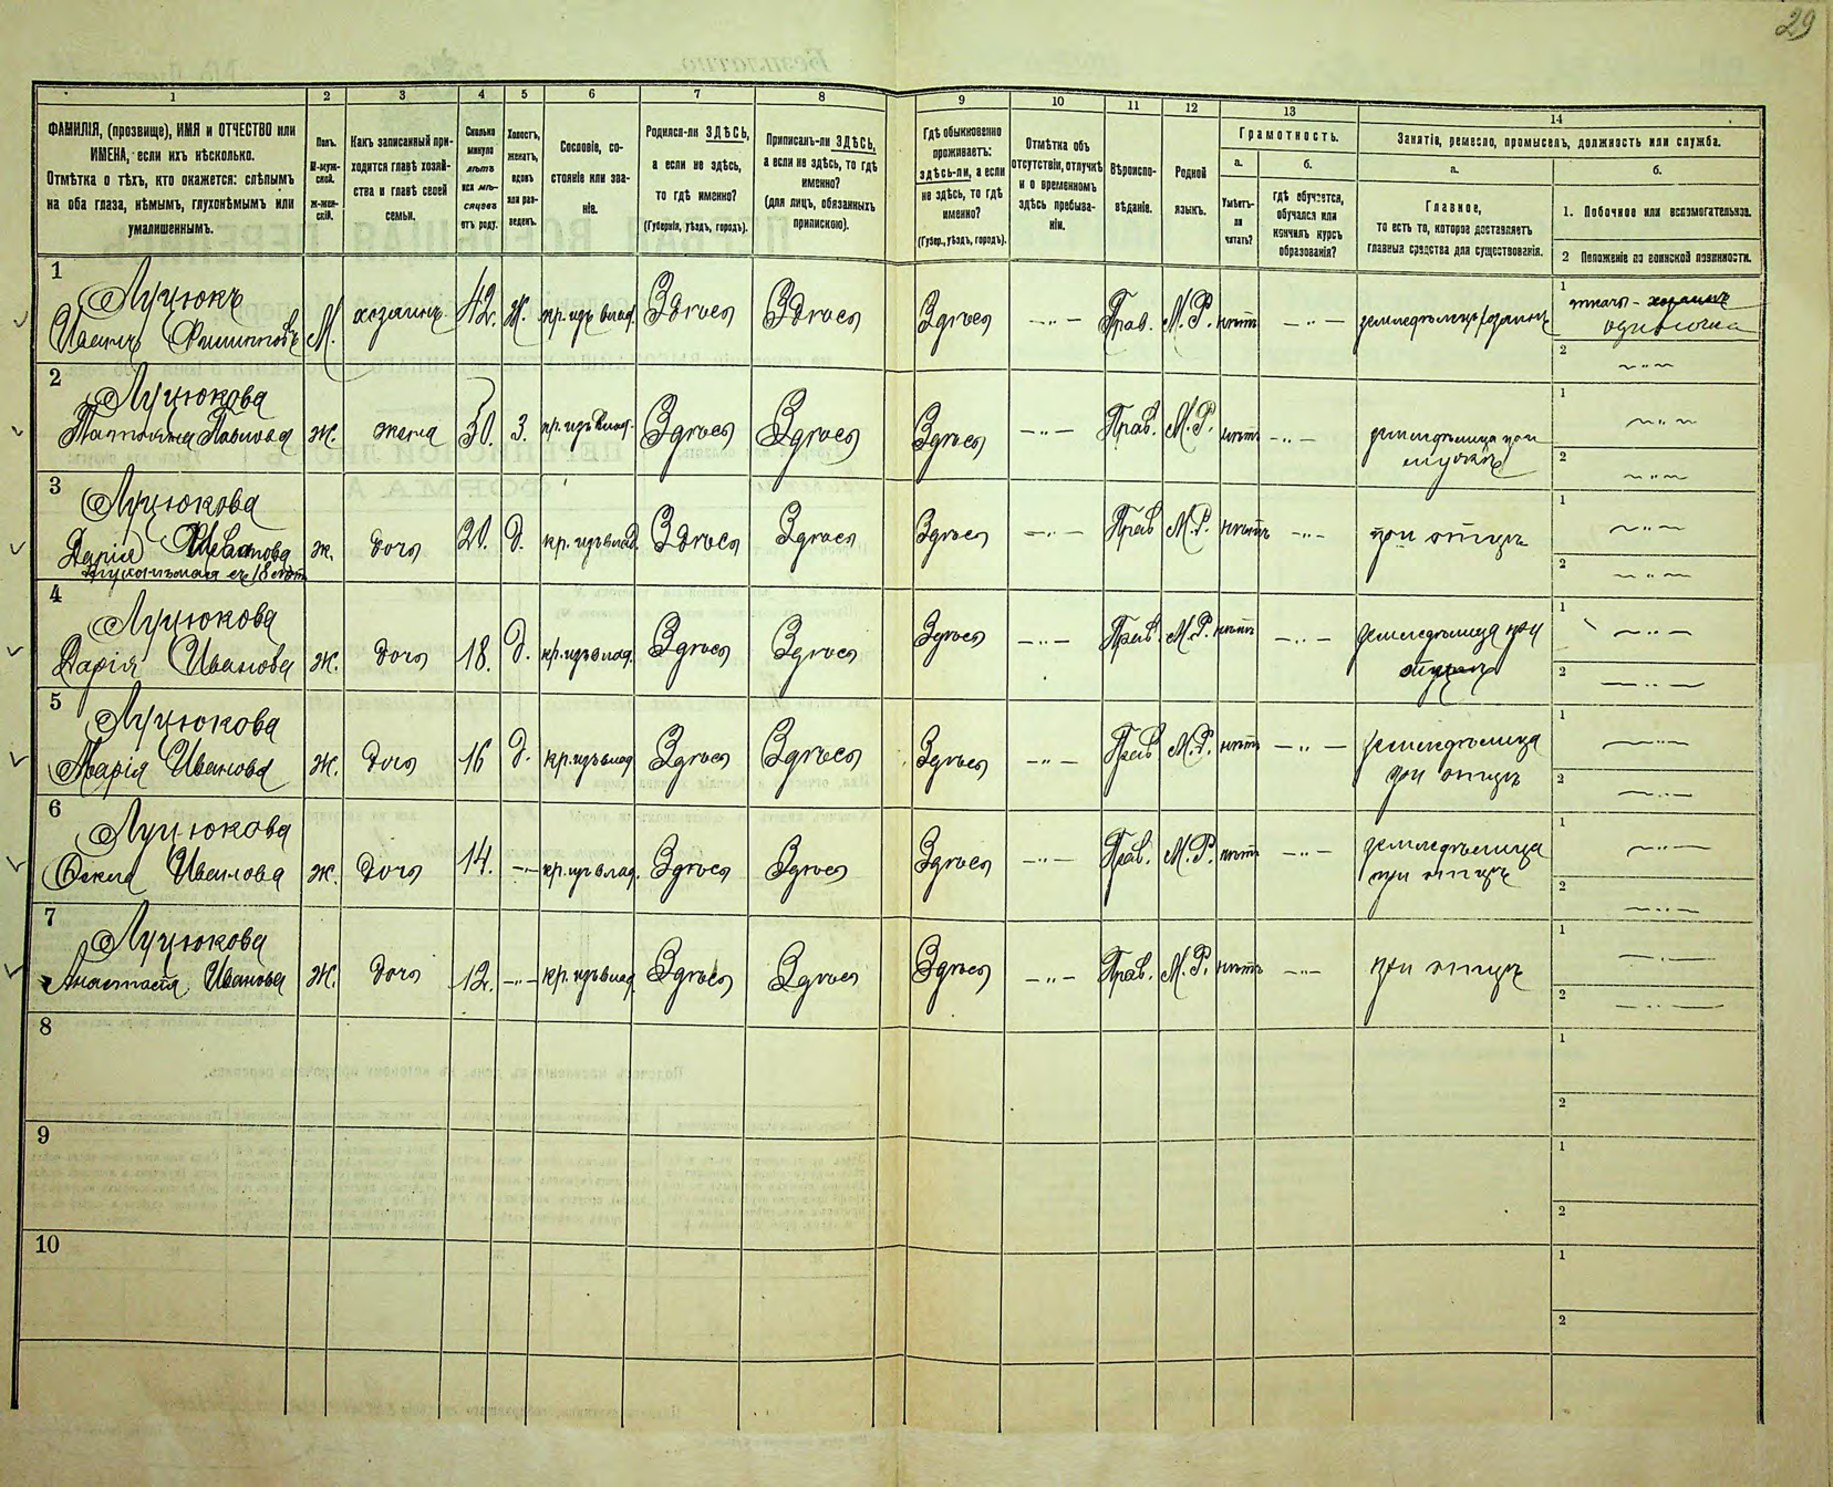 29
1
2
3
4
5
6
7
8
9
10
11
12
13
14
ФАМИЛІЯ, (прозвище), ИМЯ и ОТЧЕСТВО или
ИМЕНА, если ихъ нѣсколько.
Отмѣтка о тѣхъ, кто окажется: слѣпымъ
на оба глаза, нѣмымъ, глухонѣмымъ или
умалишеннымъ.
Полъ.
М-муж-
ской.
ж-жен-
скій.
Какъ записанный при-
ходится главѣ хозяй-
ства и главѣ своей
семьи.
Сколько
минуло
лѣтъ
или мѣ-
сяцевъ
отъ роду.
Холостъ,
женатъ,
вдовъ
или раз-
веденъ.
Сословіе, со-
стояніе или зва-
ніе.
Родился-ли ЗДѢСЬ,
а если не здѣсь,
то гдѣ именно?
(Губернія, уѣздъ, городъ).
Приписанъ-ли ЗДѢСЬ,
а если не здѣсь, то гдѣ
именно?
(для лицъ, обязанныхъ
припискою).
Гдѣ обыкновенно
проживаетъ:
здѣсь-ли, а если
не здѣсь, то гдѣ
именно?
(Губер., уѣздъ, городъ).
Отмѣтка объ
отсутствіи, отлучкѣ
и о временномъ
здѣсь пребыва-
ніи.
Вѣроиспо-
вѣданіе.
Родной
языкъ.
Грамотность.
а.
Умѣетъ-
ли
читать?
б.
гдѣ обучается,
обучался или
кончилъ курсъ
образованія?
Занятіе, ремесло, промыселъ, должность или служба.
а.
Главное,
то есть то, которое доставляетъ
главныя средства для существованія.
б.
1. Побочное или вспомогательное.
2 Положеніе по воинской повинности.
1
Луцюкъ
Иванъ Филипповъ
М.
хозяинъ
42.
Ж.
кр. изъ влад.
Здѣсь
Здѣсь
Здѣсь
— „ —
Прав.
М. Р.
нѣтъ
— „ —
земледѣлецъ хозяинъ
1
ткачъ - хозяинъ
одиночка
2
— „ —
2
Луцюкова
Татьяна Павлова
ж.
жена
30.
З.
кр. изъ влад.
Здѣсь
Здѣсь
Здѣсь
— „ —
Прав.
М. Р.
нѣтъ
— „ —
земледѣлица при
мужѣ
1
— „ —
2
— „ —
3
Луцюкова
Дарія Иванова
глухонѣмая съ 18 лѣтъ
ж.
дочь
20.
д.
кр. изъ влад.
Здѣсь
Здѣсь
Здѣсь
— „ —
Прав
М. Р.
нѣтъ
— „ —
при отцѣ
1
— „ —
2
— „ —
4
Луцюкова
Дарія Иванова
ж.
дочь
18.
д.
кр. изъ влад.
Здѣсь
Здѣсь
Здѣсь
— „ —
Прав.
М. Р.
нѣтъ
— „ —
земледѣлица при
отцѣ
1
— „ —
2
— „ —
5
Луцюкова
Марія Иванова
ж.
дочь
16
д.
кр. изъ влад
Здѣсь
Здѣсь
Здѣсь
— „ —
Прав
М. Р.
нѣтъ
— „ —
земледѣлица
при отцѣ
1
— „ —
2
— „ —
6
Луцюкова
Иванова
ж.
дочь
14.
— „ —
кр. изъ влад.
Здѣсь
Здѣсь
Здѣсь
— „ —
Прав.
М. Р.
нѣтъ
— „ —
земледѣлица
при отцѣ
1
— „ —
2
— „ —
7
Луцюкова
Анастасія Иванова
ж.
дочь
12.
— „ —
кр. изъ влад.
Здѣсь
Здѣсь
Здѣсь
— „ —
Прав.
М. Р.
нѣтъ
— „ —
при отцѣ
1
— „ —
2
— „ —
8
1
2
9
1
2
10
1
2